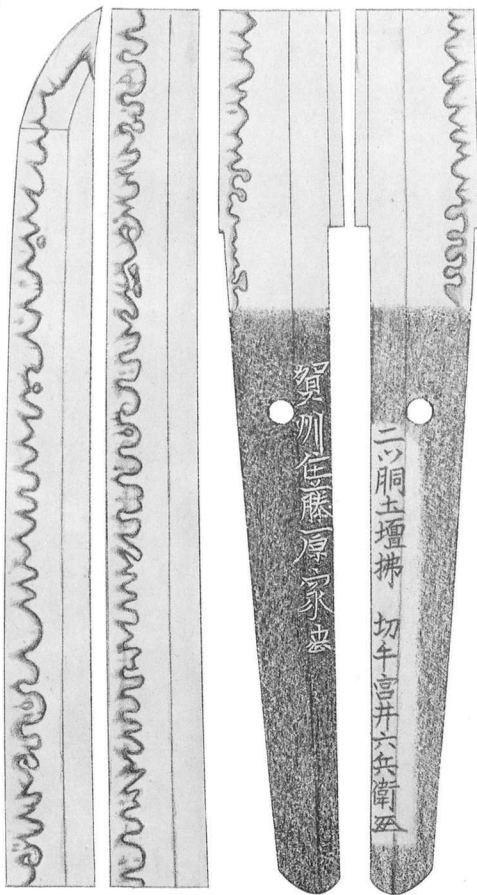 賀州住藤原家忠
二ツ胴土壇拂　切手宮井六兵衛